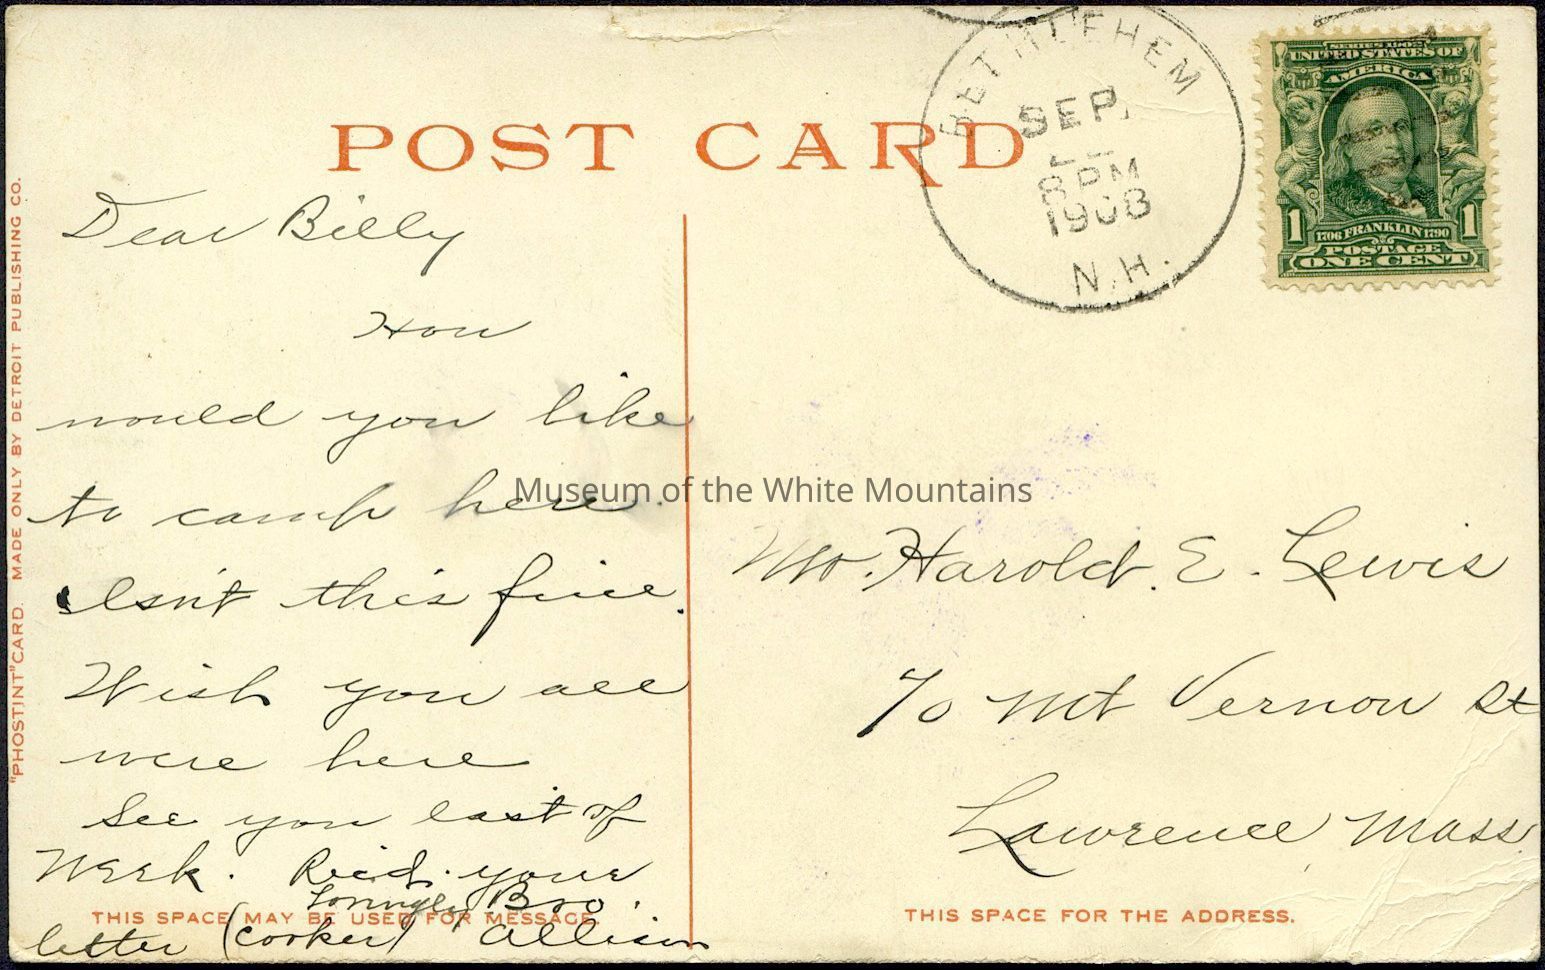 POST CARD
"PHOSTINT" CARD. MADE ONLY BY DETROIT PUBLISHING CO.
BETHLEHEM
SEP.
8 PM
1908
N.H.
SERIES 1902
UNITED STATES OF
AMERICA
1 1706 FRANKLIN 1790 1
POSTAGE
ONE CENT
Dear Billy
How
would you like
to camp here.
Isn't this fine.
Wish you all
were here
See you last of
week. Rec'd. your
letter (corker)
Lovingly Bro.
Allison
THIS SPACE MAY BE USED FOR MESSAGE.
Museum of the White Mountains
Mr. Harold. E. Lewis
70 Mt Vernon St
Lawrence Mass.
THIS SPACE FOR THE ADDRESS.